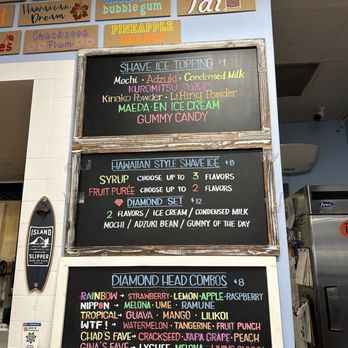 Hawaiian Dream
bubble gum
Tai
Crackseed Plum
PINEAPPLE
ORANGE
SHAVE ICE TOPPING $1
MOCHI · ADZUKI · CONDENSED MILK
KUROMITSU SYRUP
KINAKO POWDER · LI HING POWDER
MAEDA-EN ICE CREAM
GUMMY CANDY
HAWAIIAN STYLE SHAVE ICE $8
SYRUP CHOOSE UP TO 3 FLAVORS
FRUIT PURÉE CHOOSE UP TO 2 FLAVORS
DIAMOND SET $12
2 FLAVORS / ICE CREAM / CONDENSED MILK
MOCHI / ADZUKI BEAN / GUMMY OF THE DAY
ISLAND
SLIPPER
DIAMOND HEAD COMBOS $8
RAINBOW → STRAWBERRY · LEMON · APPLE · RASPBERRY
NIPPON → MELONA · UME · RAMUNE
TROPICAL → GUAVA · MANGO · LILIKOI
WTF! → WATERMELON · TANGERINE · FRUIT PUNCH
CHAD'S FAVE → CRACKSEED · JAPA GRAPE · PEACH
GINA'S FAVE → LYCHEE · MELONA